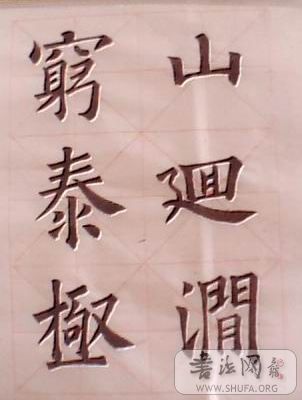 山廻澗
窮泰極
书法网
WWW.SHUFA.ORG